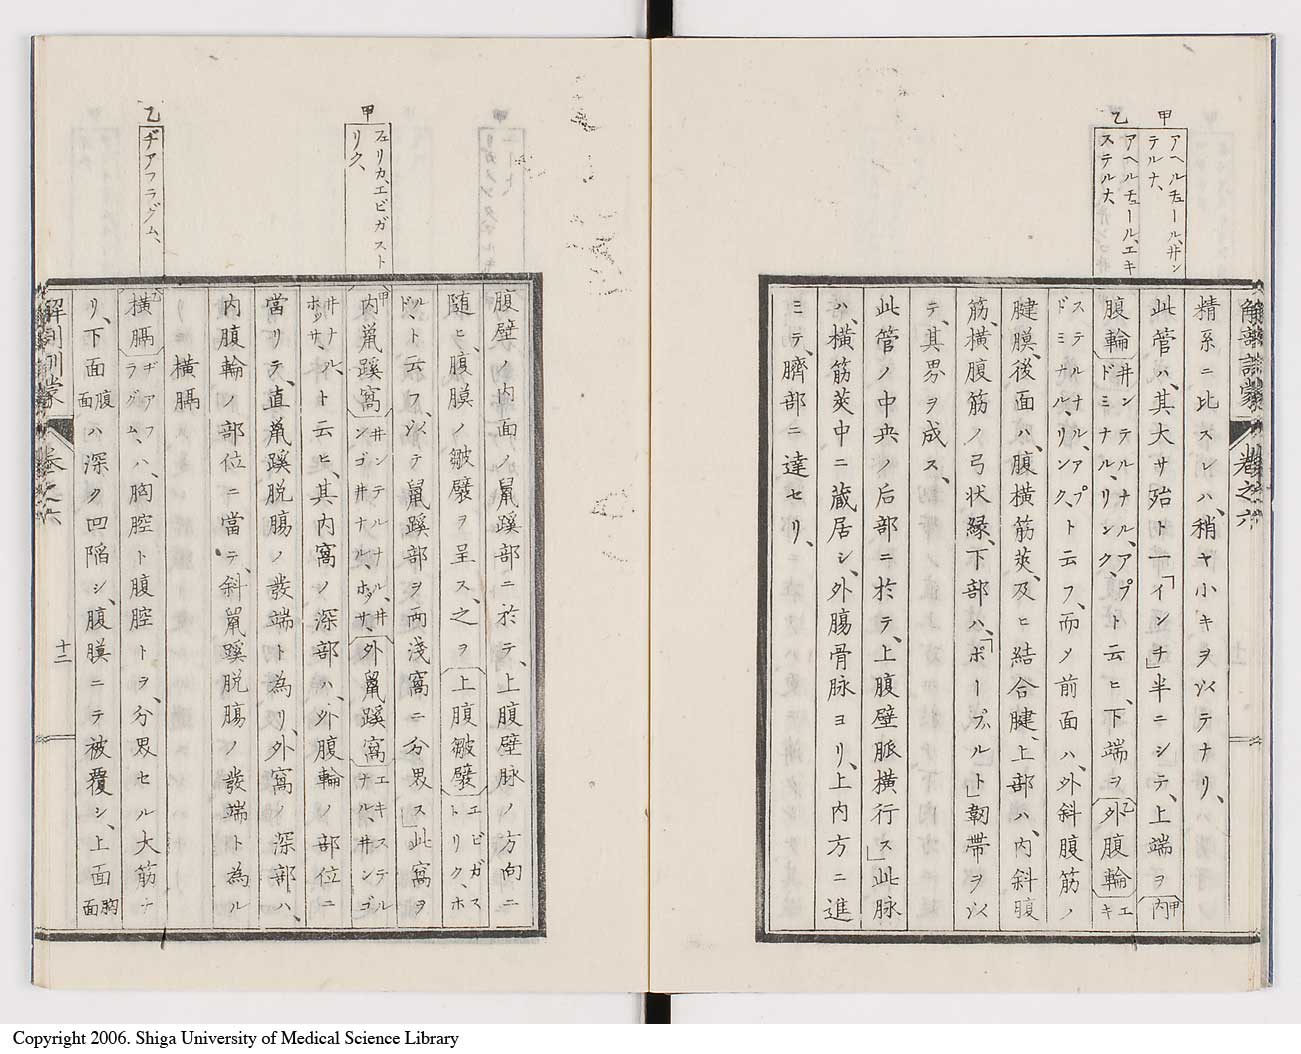 甲
アヘルチュール、井ン
テルナ、
乙
アヘルチュール、エキ
ステルナ、
解剖訓蒙
巻之六
精系ニ比スレハ、稍ヤ小キヲ以テナリ、
此管ハ、其大サ殆ト一「インチ」半ニシテ、上端ヲ甲内
腹輪井ンテルナル、アプドミナル、リンク、ト云ヒ、下端ヲ乙外腹輪エキ
ステルナル、アプドミナル、リンク、ト云フ、而メ前面ハ、外斜腹筋ノ
腱膜、後面ハ、腹横筋莢、及ヒ結合腱、上部ハ、内斜腹
筋、横腹筋ノ弓状縁、下部ハ、「ポープル」ト靭帯ヲ以
テ、其界ヲ成ス、
此管ノ中央ノ后部ニ於テ、上腹壁脈横行ス」此脉
ハ、横筋莢中ニ蔵居シ、外腸骨脉ヨリ、上内方ニ進
ミテ、臍部ニ達セリ、
甲
フェリカ、エピガスト
リク、
乙
ヂアフラグム、
腹壁ノ内面ノ鼠蹊部ニ於テ、上腹壁脉ノ方向ニ
随ヒ、腹膜ノ皺襞ヲ呈ス、之ヲ上腹皺襞エピガストリク、ホ
ルドト云フ、以テ鼠蹊部ヲ両淺窩ニ分界ス」此窩ヲ
甲内鼠蹊窩井ンテルナル、井ンゴ井ナル、ホッサ、外鼠蹊窩エキステルナル、井ンゴ
井ナル、ホッサ、ト云ヒ、其内窩ノ深部ハ、外腹輪ノ部位ニ
當リテ、直鼠蹊脱腸ノ發端ト為リ、外窩ノ深部ハ、
内腹輪ノ部位ニ當テ、斜鼠蹊脱腸ノ發端ト為ル
横膈
乙横膈ヂアフラグム、ハ、胸腔ト腹腔トヲ、分界セル大筋ナ
リ、下面腹面ハ深ク凹陥シ、腹膜ニテ被覆シ、上面胸面
解剖訓蒙
巻之六
十二
Copyright 2006. Shiga University of Medical Science Library